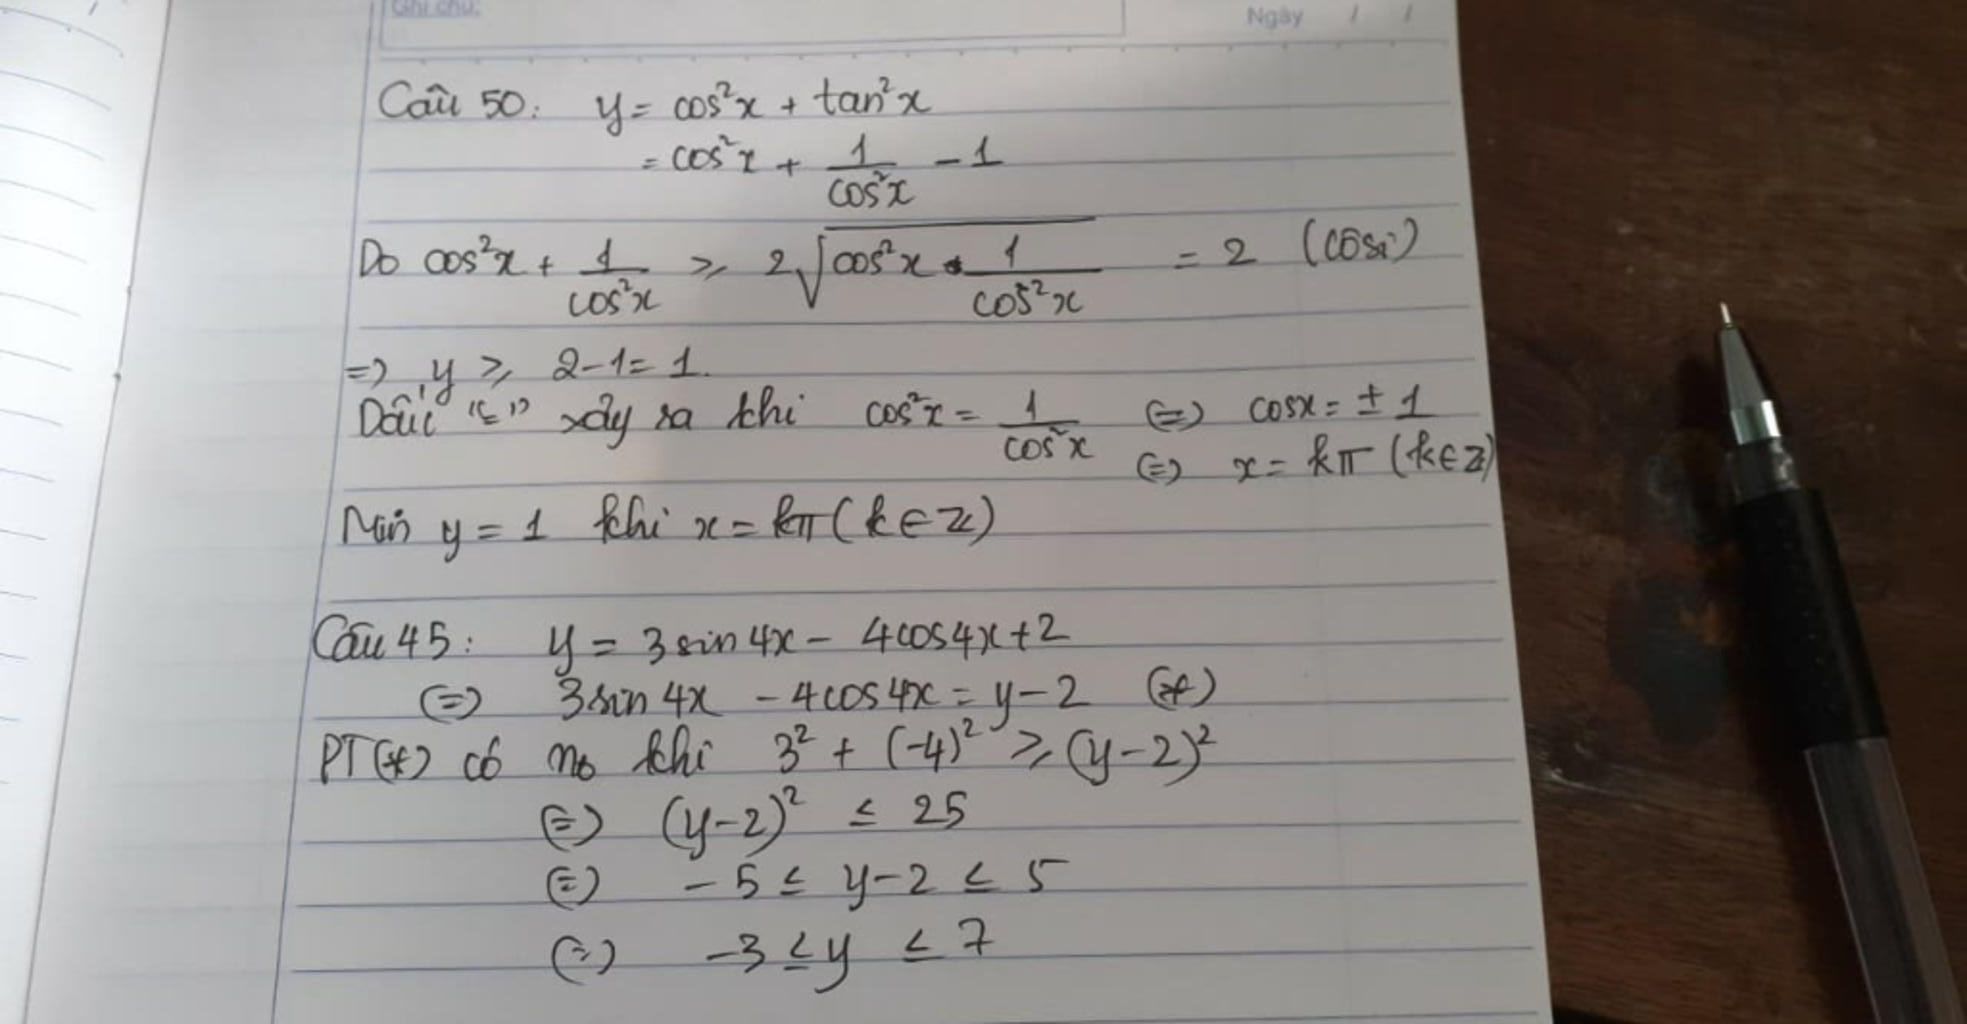 Ghi chú:
Ngày / /
Câu 50: y = cos²x + tan²x
= cos²x + 1/cos²x - 1
Do cos²x + 1/cos²x ⩾ 2√(cos²x · 1/cos²x) = 2 (côsi)
=> y ⩾ 2-1 = 1.
Dấu "=" xảy ra khi cos²x = 1/cos²x (=) cosx = ± 1
(=) x = kπ (k∈Z)
Min y = 1 khi x = kπ (k∈Z)
Câu 45: y = 3sin4x - 4cos4x + 2
(=) 3sin4x - 4cos4x = y-2 (*)
PT(*) có no khi 3² + (-4)² ⩾ (y-2)²
(=) (y-2)² ≤ 25
(=) -5 ≤ y-2 ≤ 5
(=) -3 ≤ y ≤ 7